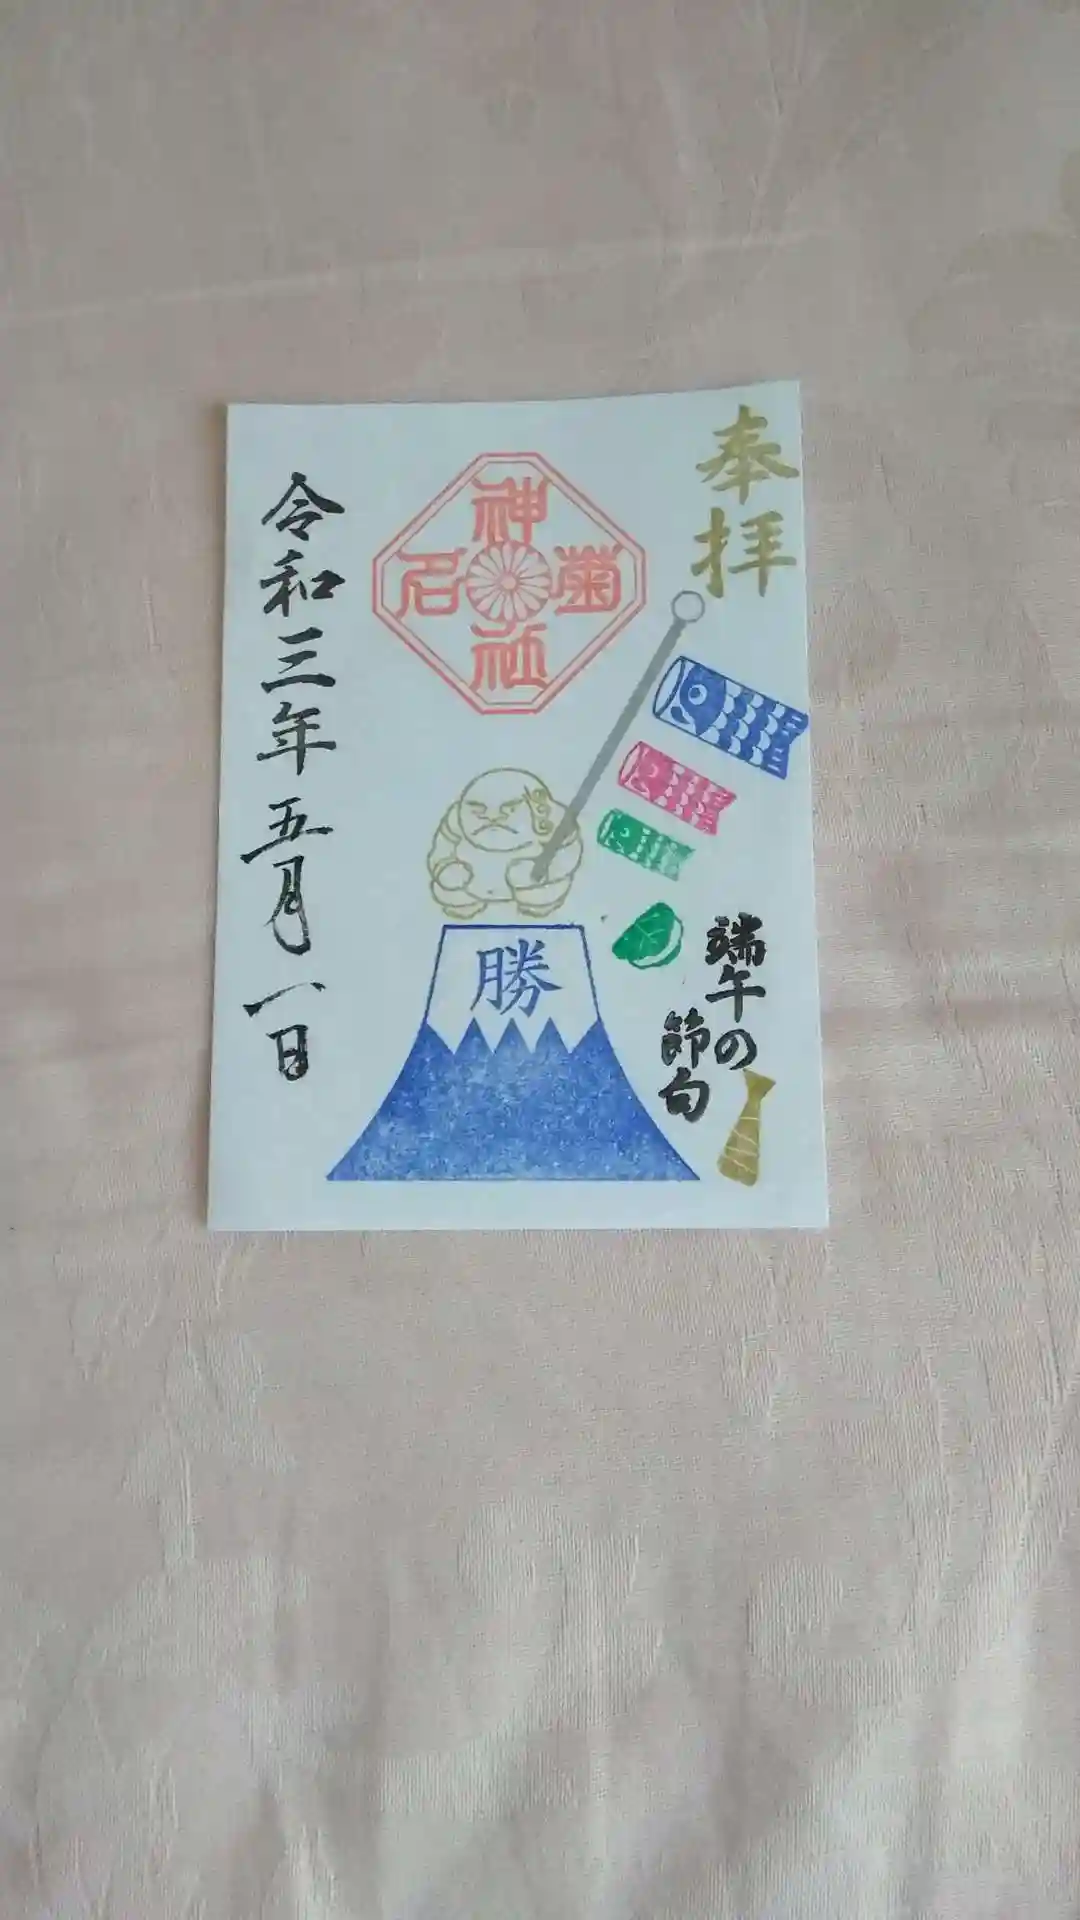 奉拝
菊名神社
勝
端午の
節句
令和三年五月一日